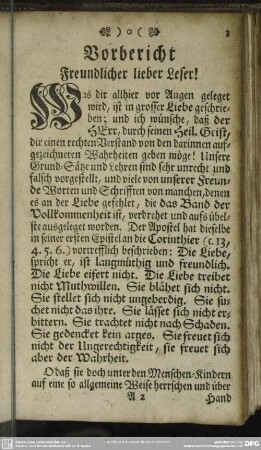 ) o (
3
Vorbericht
Freundlicher lieber Leser!
Was dir allhier vor Augen geleget
wird, ist in grosser Liebe geschrie-
ben; und ich wünsche, daß der
HErr, durch seinen Heil. Geist,
dir einen rechten Verstand von den darinnen auf-
gezeichneten Wahrheiten geben möge! Unsere
Grund-Sätze und Lehren sind sehr unrecht und
falsch vorgestellt, und viele von unserer Freun-
de Worten und Schrifften von manchen, denen
es an der Liebe gefehlet, die das Band der
Vollkommenheit ist, verdrehet und aufs übel-
ste ausgeleget worden. Der Apostel hat dieselbe
in seiner ersten Epistel an die Corinthier (c. 13,
4. 5. 6.) vortrefflich beschrieben: Die Liebe,
spricht er, ist langmüthig und freundlich.
Die Liebe eifert nicht. Die Liebe treibet
nicht Muthwillen. Sie blähet sich nicht.
Sie stellet sich nicht ungeberdig. Sie su-
chet nicht das ihre. Sie lässet sich nicht er-
bittern. Sie trachtet nicht nach Schaden.
Sie gedencket kein arges. Sie freuet sich
nicht der Ungerechtigkeit, sie freuet sich
aber der Wahrheit.
O daß sie doch unter den Menschen-Kindern
auf eine so allgemeine Weise herrschen und über
A 2 Hand
DFG